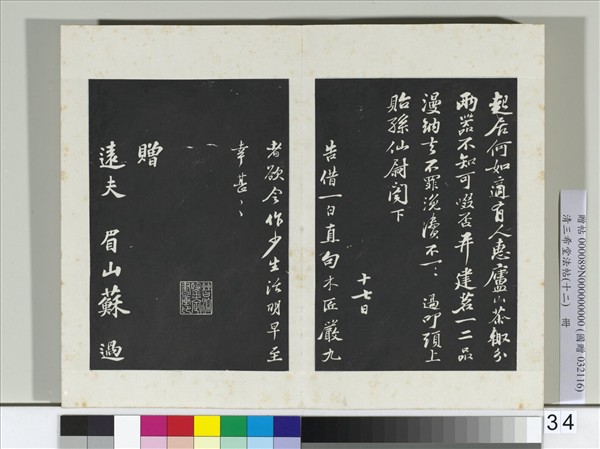 起居何如適有人惠廬山茶輙分
兩器不知可啜否并建茗一二品
漫納去不罪浼瀆不一〻過叩頭上
貽孫仙尉閣下
十七日
告借一白直句木匠嚴九
者欲令作少生活明早至
幸甚〻
贈
遠夫 眉山蘇過
贈帖 000089N000000000 (國贈 032116)
清三希堂法帖(十二) 冊
34